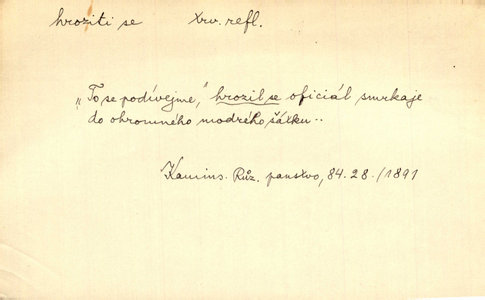 hroziti se trv. refl.
„To se podívejme," hrozil se oficiál smrkaje
do ohromného modrého šátku..
Kamins. Růz. panstvo, 84. 28. / 1891